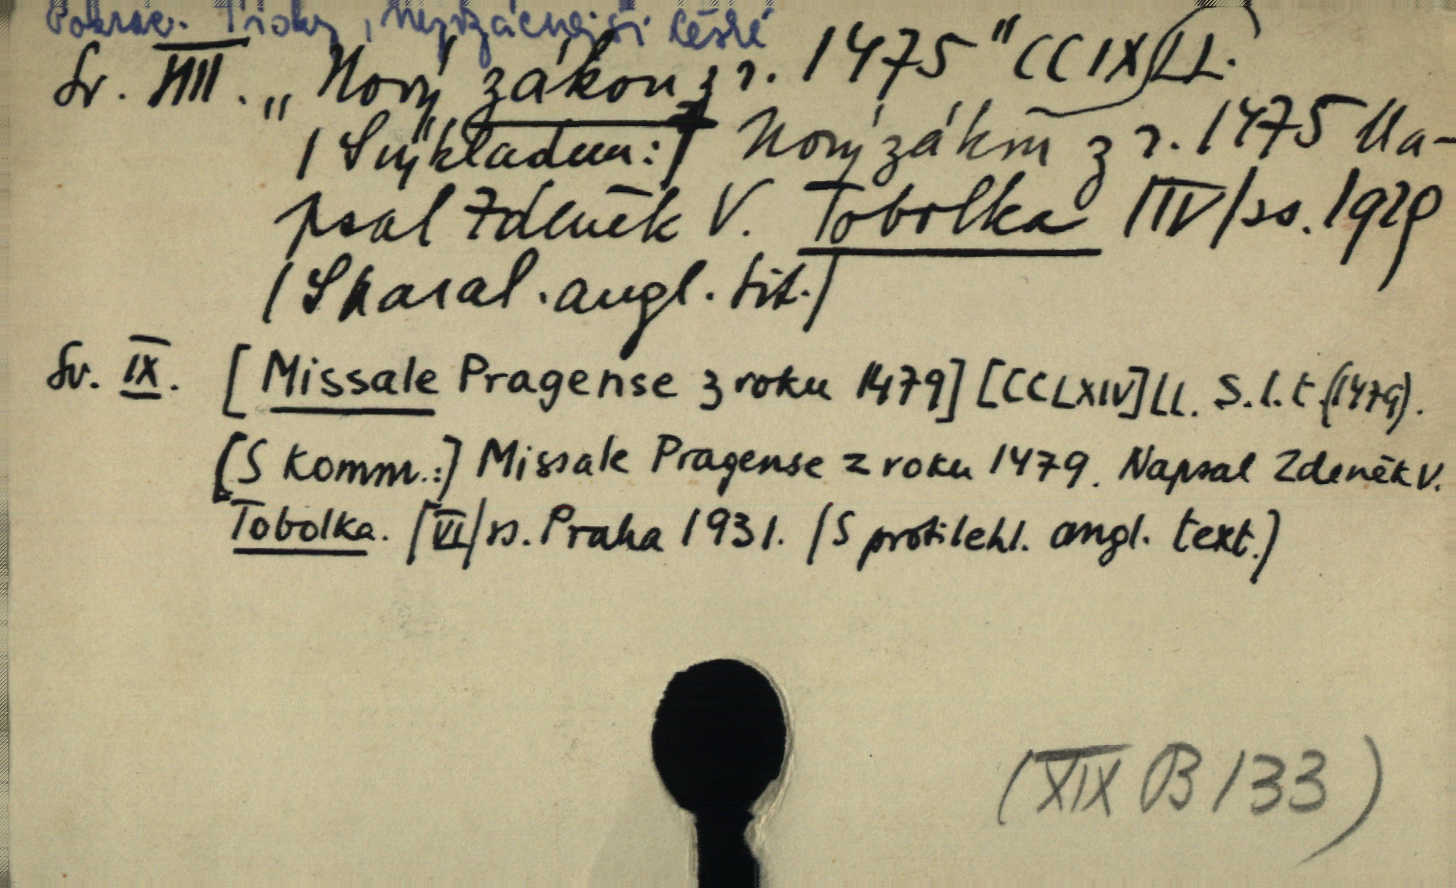 Pokrač. Tisky, Nejvzácnější české
Sv. VIII. „Nový zákon z r. 1475" CCIX LL.
/S výkladem:/ Nový zákon z r. 1475 Na-
psal Zdeněk V. Tobolka /IV/ ss. 1929
/S paral. angl. tit./
Sv. IX. [Missale Pragense z roku 1479] [CCLXIV] LL. S. l. t. (1479).
[S komm.:] Missale Pragense z roku 1479. Napsal Zdeněk V.
Tobolka. /VI/ ss. Praha 1931. /S protilehl. angl. text./
(XIX B 133)